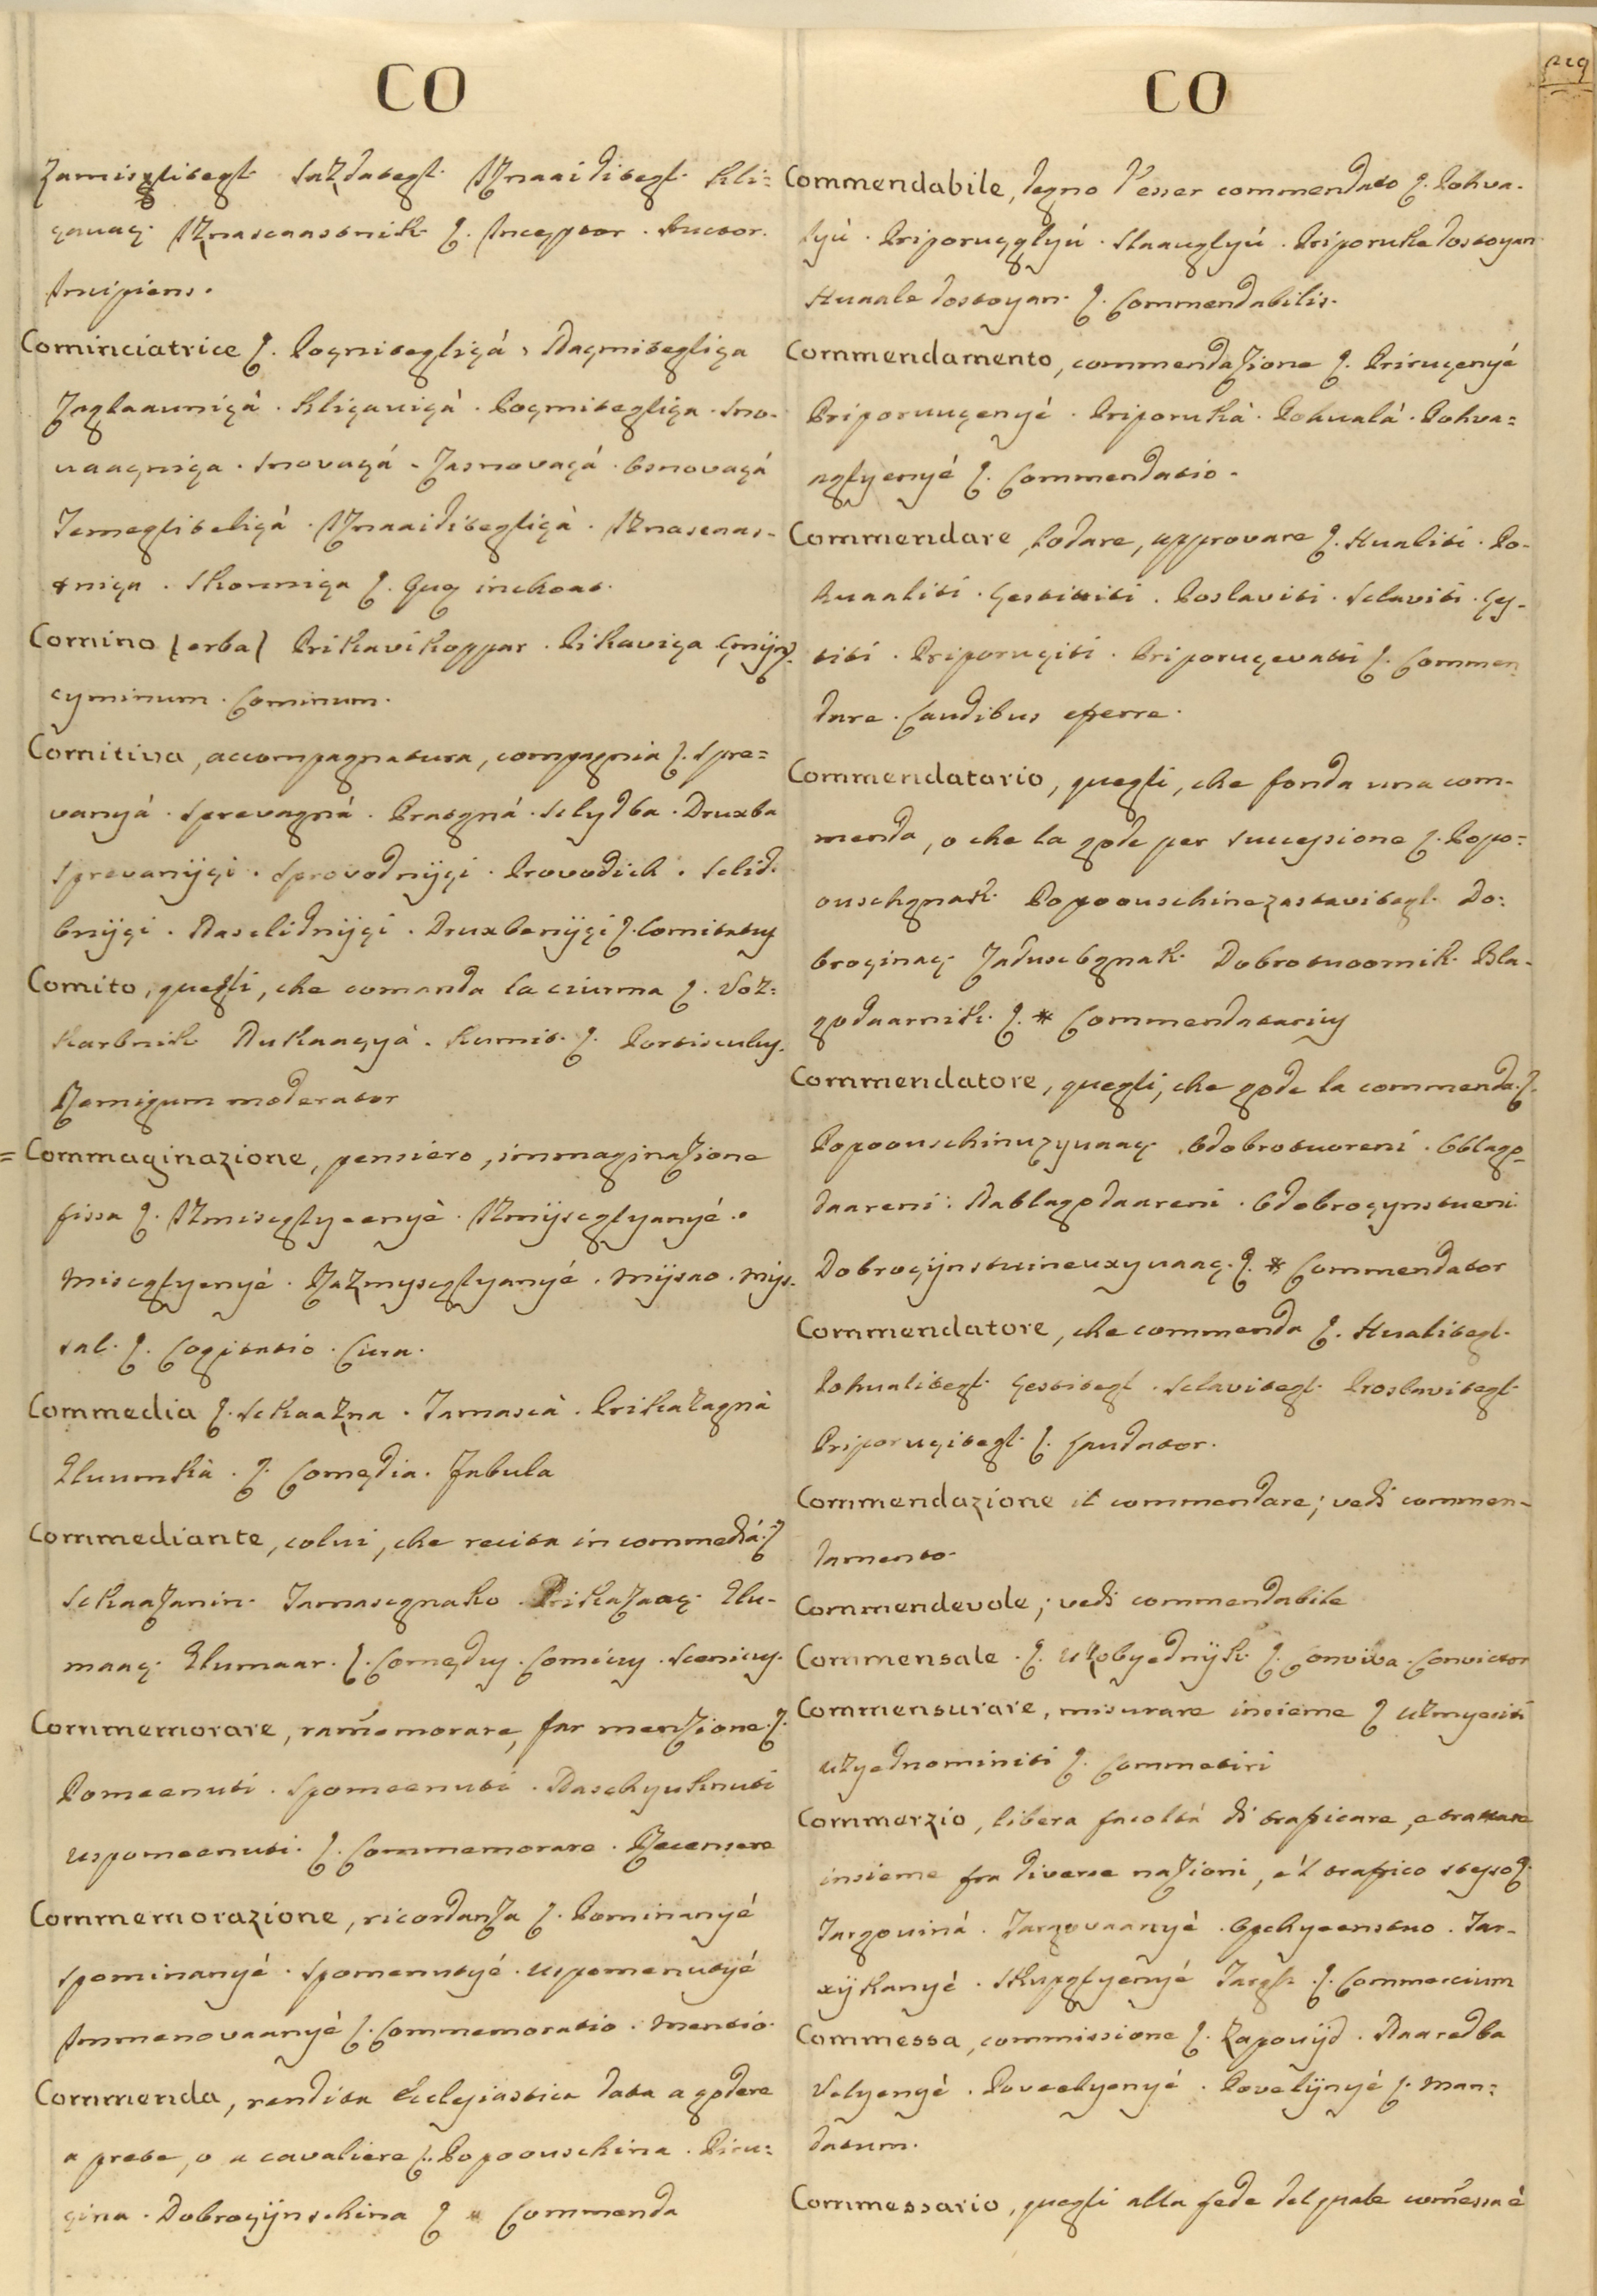 CO
Zamisglitegl. Sazdategl. Iznaaiditegl. Kli=
çauaç. Iznascaastnik. Inceptor. Auctor.
Incipiens.
Cominciatrice Poçnitegliçá, Naçmitegliça
Zaglaauniçà. Kliçauiçà. Poçmitegliça. Sno-
uaaçniça. Snovaçá. Zasnovaçá. Osnovaçá
Temegliteliçà. Iznaaiditegliçà. Iznascaas-
tniça. Skonniça. Quę inchoat.
Comino (erba) Prikavikoppar. Pikaviça
cyminum. Cominum.
Comitiva, accompagnatura, compagnia. Spre=
vanyá. Sprevagná. Pratgná. Sclydba. Druxba
Sprevanijçi. Sprovodnijçi. Provodich. Sclid-
bnijçi. Nasclidnijçi. Druxbenijçi. Comitatus
Comito, quegli, che comanda la ciurma. Voz=
karbnik. Dukaaçyà. Kumit. Portisculus.
Remigum moderator
= Commaginazione, pensiero, immaginazione
fissa. Izmiscglyeenyè. Izmijscglyanyé.
Miscglyenyè. Razmyscglyanyé. Mijsao. Mijs-
sal. Cogitatio. Cura.
Commedia. Sckaazna. Tamascà. Prikazagnà
Glumkà. Comędia. Fabula
Commediante, colui, che recita in commediá.
Sckaazanin. Tamascgnako. Prikazaaç. Glu-
maaç. Glumaar. Comędus. Comicus. Scenicus.
Commemorare, ram̃emorare, far menzione.
Pomeenuti. Spomeenuti. Naschyuknuti
uspomeenuti. Commemorare. Recensere
Commemorazione, ricordanza. Pominanyé
Spominanyé. Spomenutyé. uspomenutyé
Immenovaanyè. Commemoratio. Mentio.
Commenda, rendita Ecclesiastica data a godere
a prete, o a cavaliere. Popoouschina. Piru=
çina. Dobroçijnschina * Commenda
CO
Commendabile, degno d'esser commendato. Pohva-
lyù. Priporuçglyú. Slaauglyú. Priporuke dostoyan
Huaale dostoyan. Commendabilis.
Commendamento, commendazione. Priruçenyé
Priporuuçenyé. Priporukà. Pohualá. Pohva=
aglyenyé. Commendatio.
Commendare, lodare, approvare. Hualiti. Po-
huaaliti. Çestititi. Poslaviti. Sclaviti. Çes-
titi. Priporuçiti. Priporuçevatti. Commen
dare. Laudibus eferre.
Commendatario, quegli, che fonda una com-
menda, o che la gode per succesione. Popo=
ouschgnak. Popoouschinezastavitegl. Do=
broçinaç. Zaduscbgnak. Dobrotuoornik. Bla-
godaarnik. * Commendatarius
Commendatore, quegli, che gode la commenda.
Popoouschinuzyuaaç. Odobrotuoreni. Oblago-
daareni. Nablagodaareni. Odobroçynstueni
Dobroçijnstuineuxyuaaç. * Commendator
Commendatore, che commenda. Hualitegl.
Pohualitegl. Çestitegl. Sclavitegl. Proslavitegl.
Priporuçitegl. Laudator.
Commendazione il commendare; vedi commen-
damento.
Commendevole; vedi commendabile
Commensale. uzobyednijk. Conviva. Convictor
Commensurare, misurare insieme uzmyeriti
uzyednominiti. Commetiri
Commerzio, libera facoltà di traficare, e trattare
insieme fra diverse nazioni, e'l trafico steso.
Targouiná. Targovaanyè. Opchyeenstuo. Tar-
xijkanyé. Skupglyenyé Targh. Commercium
Commessa, commissione. Zapovijd. Naaredba
Velyenyé. Poveelyenyé. Povelijnyé. Man=
datum.
Commessario, quegli alla fede del quale com̃essa è